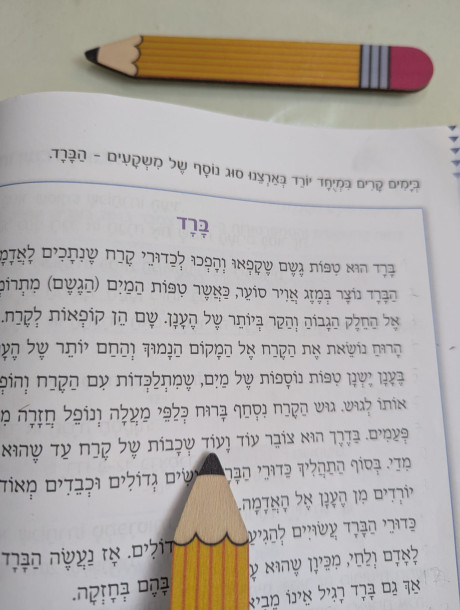 בְּיָמִים קָרִים בִּמְיֻחָד יוֹרֵד בְּאַרְצֵנוּ סוּג נוֹסָף שֶׁל מִשְׁקָעִים – הַבָּרָד.
בָּרָד
בָּרָד הוּא טִפּוֹת גֶּשֶׁם שֶׁקָּפְאוּ וְהָפְכוּ לְכַדּוּרֵי קֶרַח שֶׁנִּתָּכִים לָאֲדָמָ
הַבָּרָד נוֹצָר בְּמֶזֶג אֲוִיר סוֹעֵר, כַּאֲשֶׁר טִפּוֹת הַמַּיִם (הַגֶּשֶׁם)
אֶל הַחֵלֶק הַגָּבוֹהַּ וְהַקַּר בְּיוֹתֵר שֶׁל הֶעָנָן. שָׁם הֵן קוֹפְאוֹת לְקֶרַח.
הָרוּחַ נוֹשֵׂאת אֶת הַקֶּרַח אֶל הַמָּקוֹם הַנָּמוּךְ וְהַחַם יוֹתֵר שֶׁל
בֶּעָנָן יֶשְׁנָן טִפּוֹת נוֹסָפוֹת שֶׁל מַיִם, שֶׁמִּתְלַכְּדוֹת עִם הַקֶּרַח
אוֹתוֹ לְגוּשׁ. גּוּשׁ הַקֶּרַח נִסְחָף בָּרוּחַ כְּלַפֵּי מַעְלָה וְנוֹפֵל חֲזָרָה
פְּעָמִים. בַּדֶּרֶךְ הוּא צוֹבֵר עוֹד וָעוֹד שְׁכָבוֹת שֶׁל קֶרַח עַד שֶׁהוּא
מִדַּי. בְּסוֹף הַתַּהֲלִיךְ כַּדּוּרֵי גְּדוֹלִים וּכְבֵדִים מְאוֹד
יוֹרְדִים מִן הֶעָנָן אֶל הָאֲדָמָה.
כַּדּוּרֵי הַבָּרָד עֲשׂוּיִים אָז נַעֲשֶׂה הַבָּרָד
לָאָדָם וְלַחַי, מִכֵּיוָן שֶׁהוּא בָּהֶם בְּחָזְקָה.
אַךְ גַּם בָּרָד רָגִיל אֵינוֹ